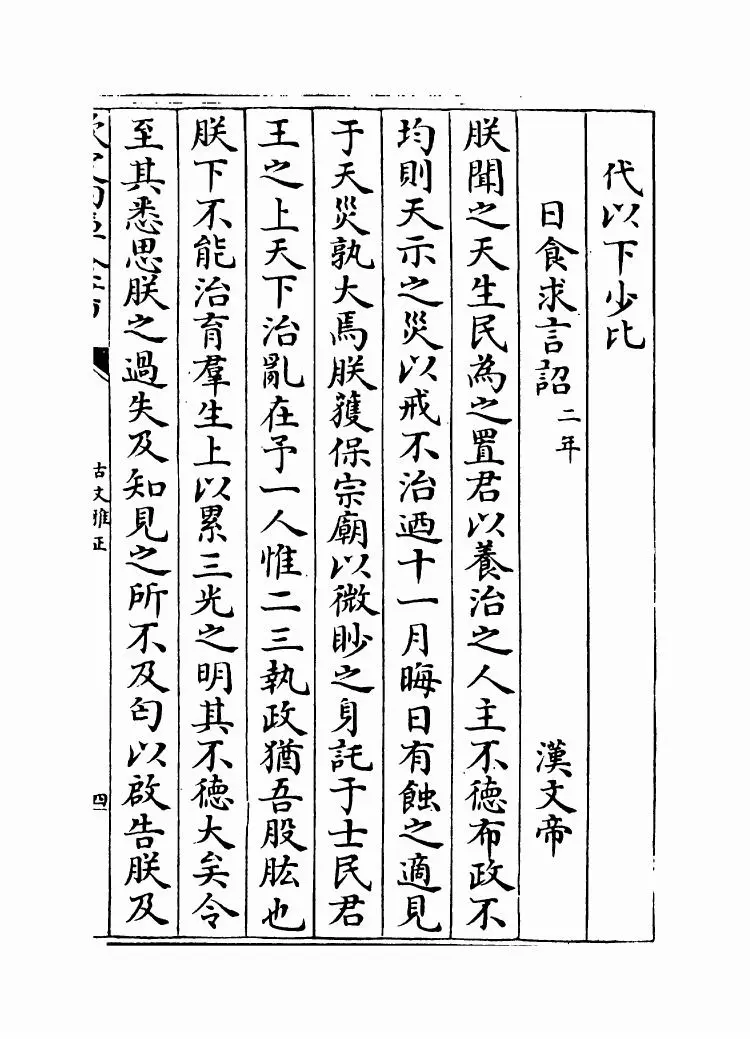 代以下少比
日食求言詔 二年 漢文帝
朕聞之天生民為之置君以養治之人主不德布政不
均則天示之災以戒不治迺十一月晦日有蝕之適見
于天災孰大焉朕獲保宗廟以微眇之身託于士民君
王之上天下治亂在予一人惟二三執政猶吾股肱也
朕下不能治育羣生上以累三光之明其不德大矣令
至其悉思朕之過失及知見之所不及匄以啟告朕及
古文雅正
四